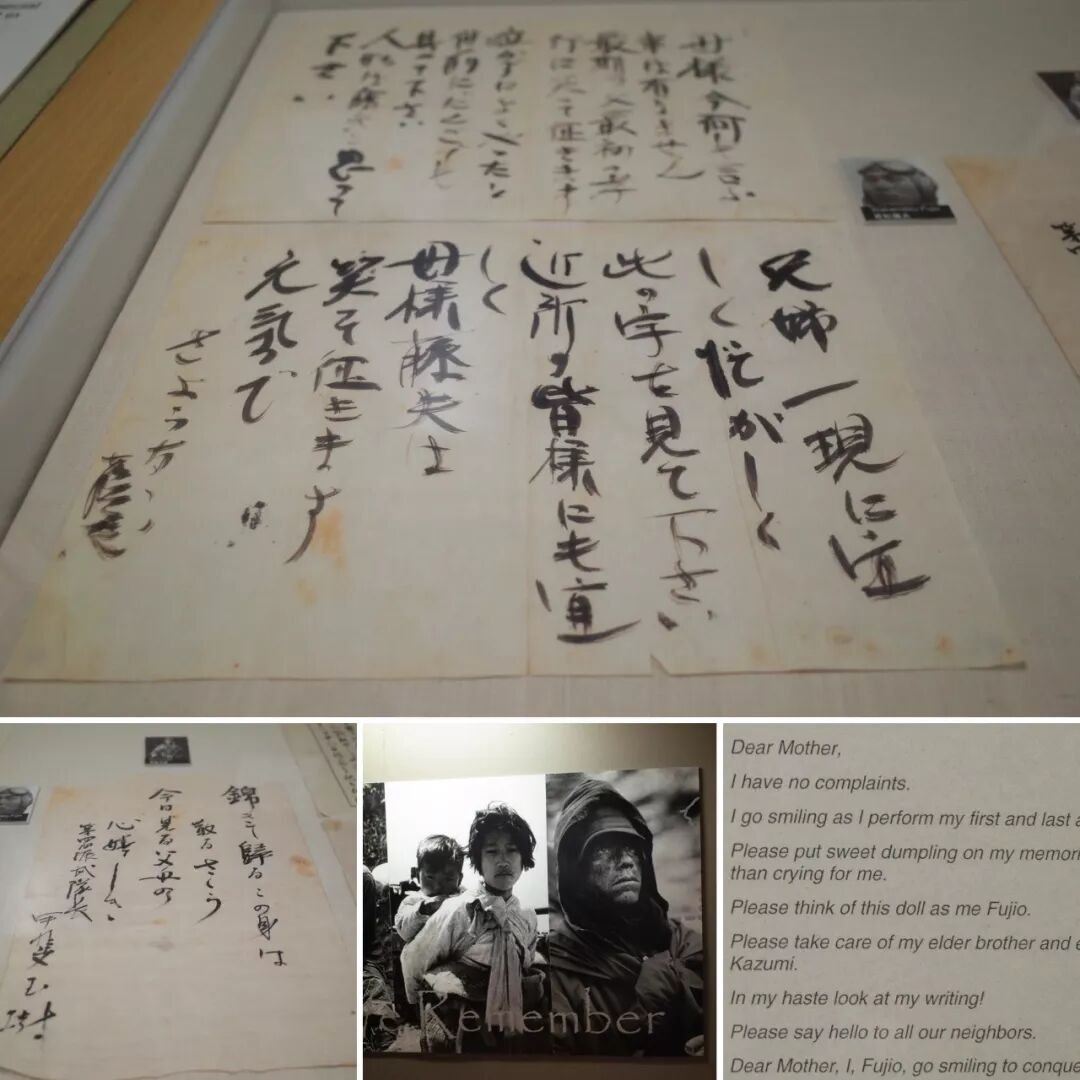 母様今何も言ふ
事は有りません
最期の又最初の孝
行に笑って征きます
泣かずによくやったと
母前にだんごでも
具へて下さい
人形は藤夫と思って
下さい
兄姉一現に宜
しく忙がしく
此の字を見て下さい
近所の皆様にも宜
しく
母様藤夫は
笑って征きます
元気で
さようなら
錦きて歸るこの身は
散るさくら
今日見る父母の
心嬉しき
Dear Mother,
I have no complaints.
I go smiling as I perform my first and last
Please put sweet dumpling on my
than crying for me.
Please think of this doll as me Fujio.
Please take care of my elder brother and
Kazumi.
In my haste look at my writing!
Please say hello to all our neighbors.
Dear Mother, I, Fujio, go smiling to
emember